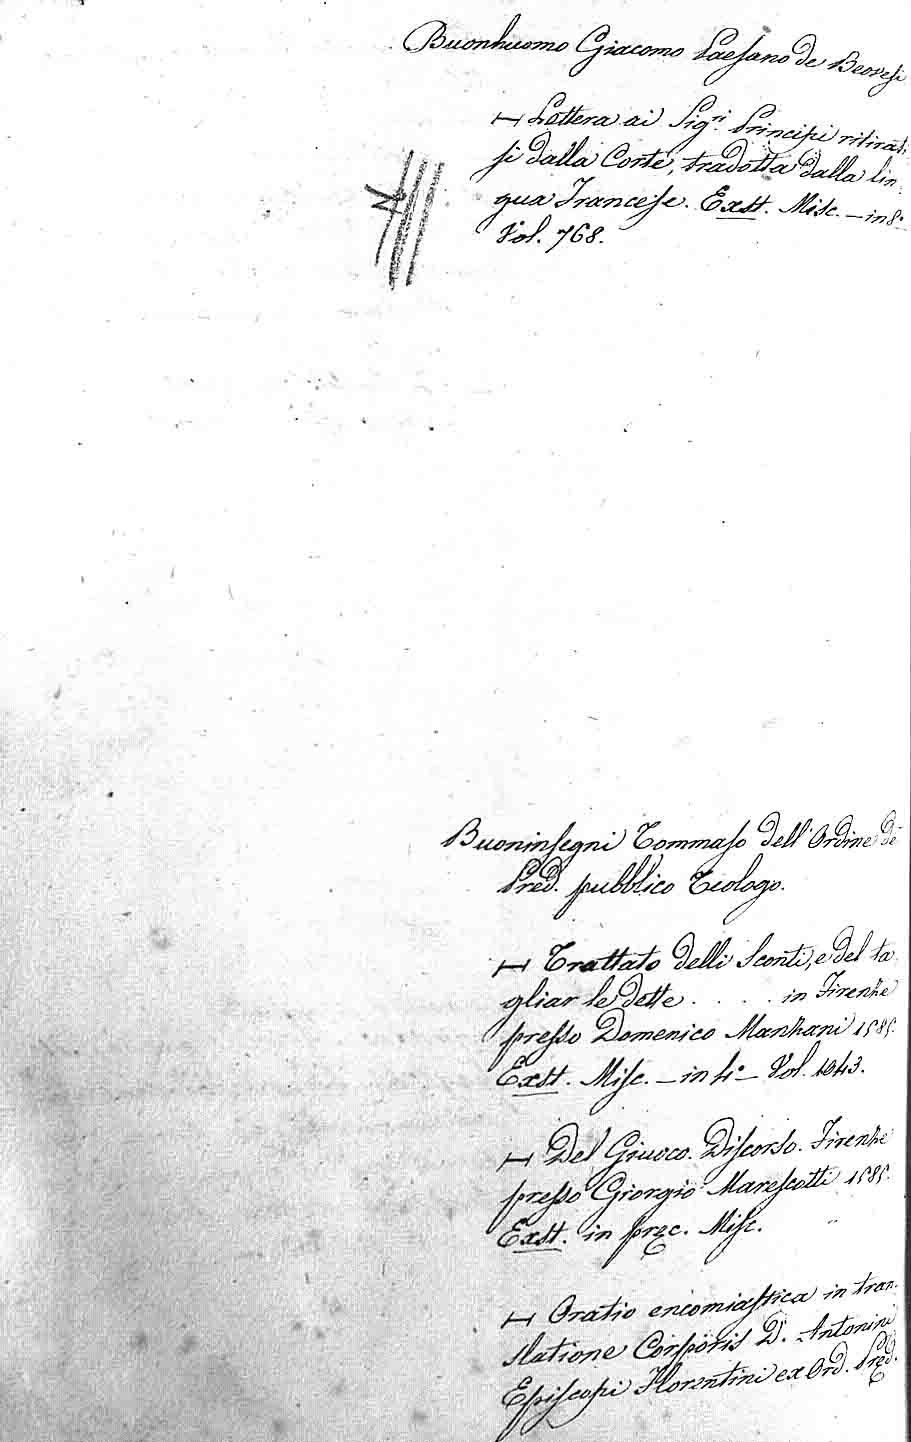 Buonhuomo Giacomo Paesano de Beovesi
— Lettera ai Sig.ri Principi ritirati-
si dalla Corte, tradotta dalla lin-
gua Francese. Exst. Misc. – in 8.°
Vol. 768.
Buoninsegni Tommaso dell'Ordine de'
Pred. pubblico Teologo.
— Trattato delli Sconti, e del ta-
gliar le dette . . . . in Firenze
presso Domenico Manzani 1585.
Exst. Misc. – in 4.° – Vol. 1043.
— Del Giuoco. Discorso. Firenze
presso Giorgio Marescotti 1585.
Exst. in prec. Misc.
— Oratio encomiastica in tran-
slatione Corporis D. Antonini
Episcopi Florentini ex Ord. Pred.